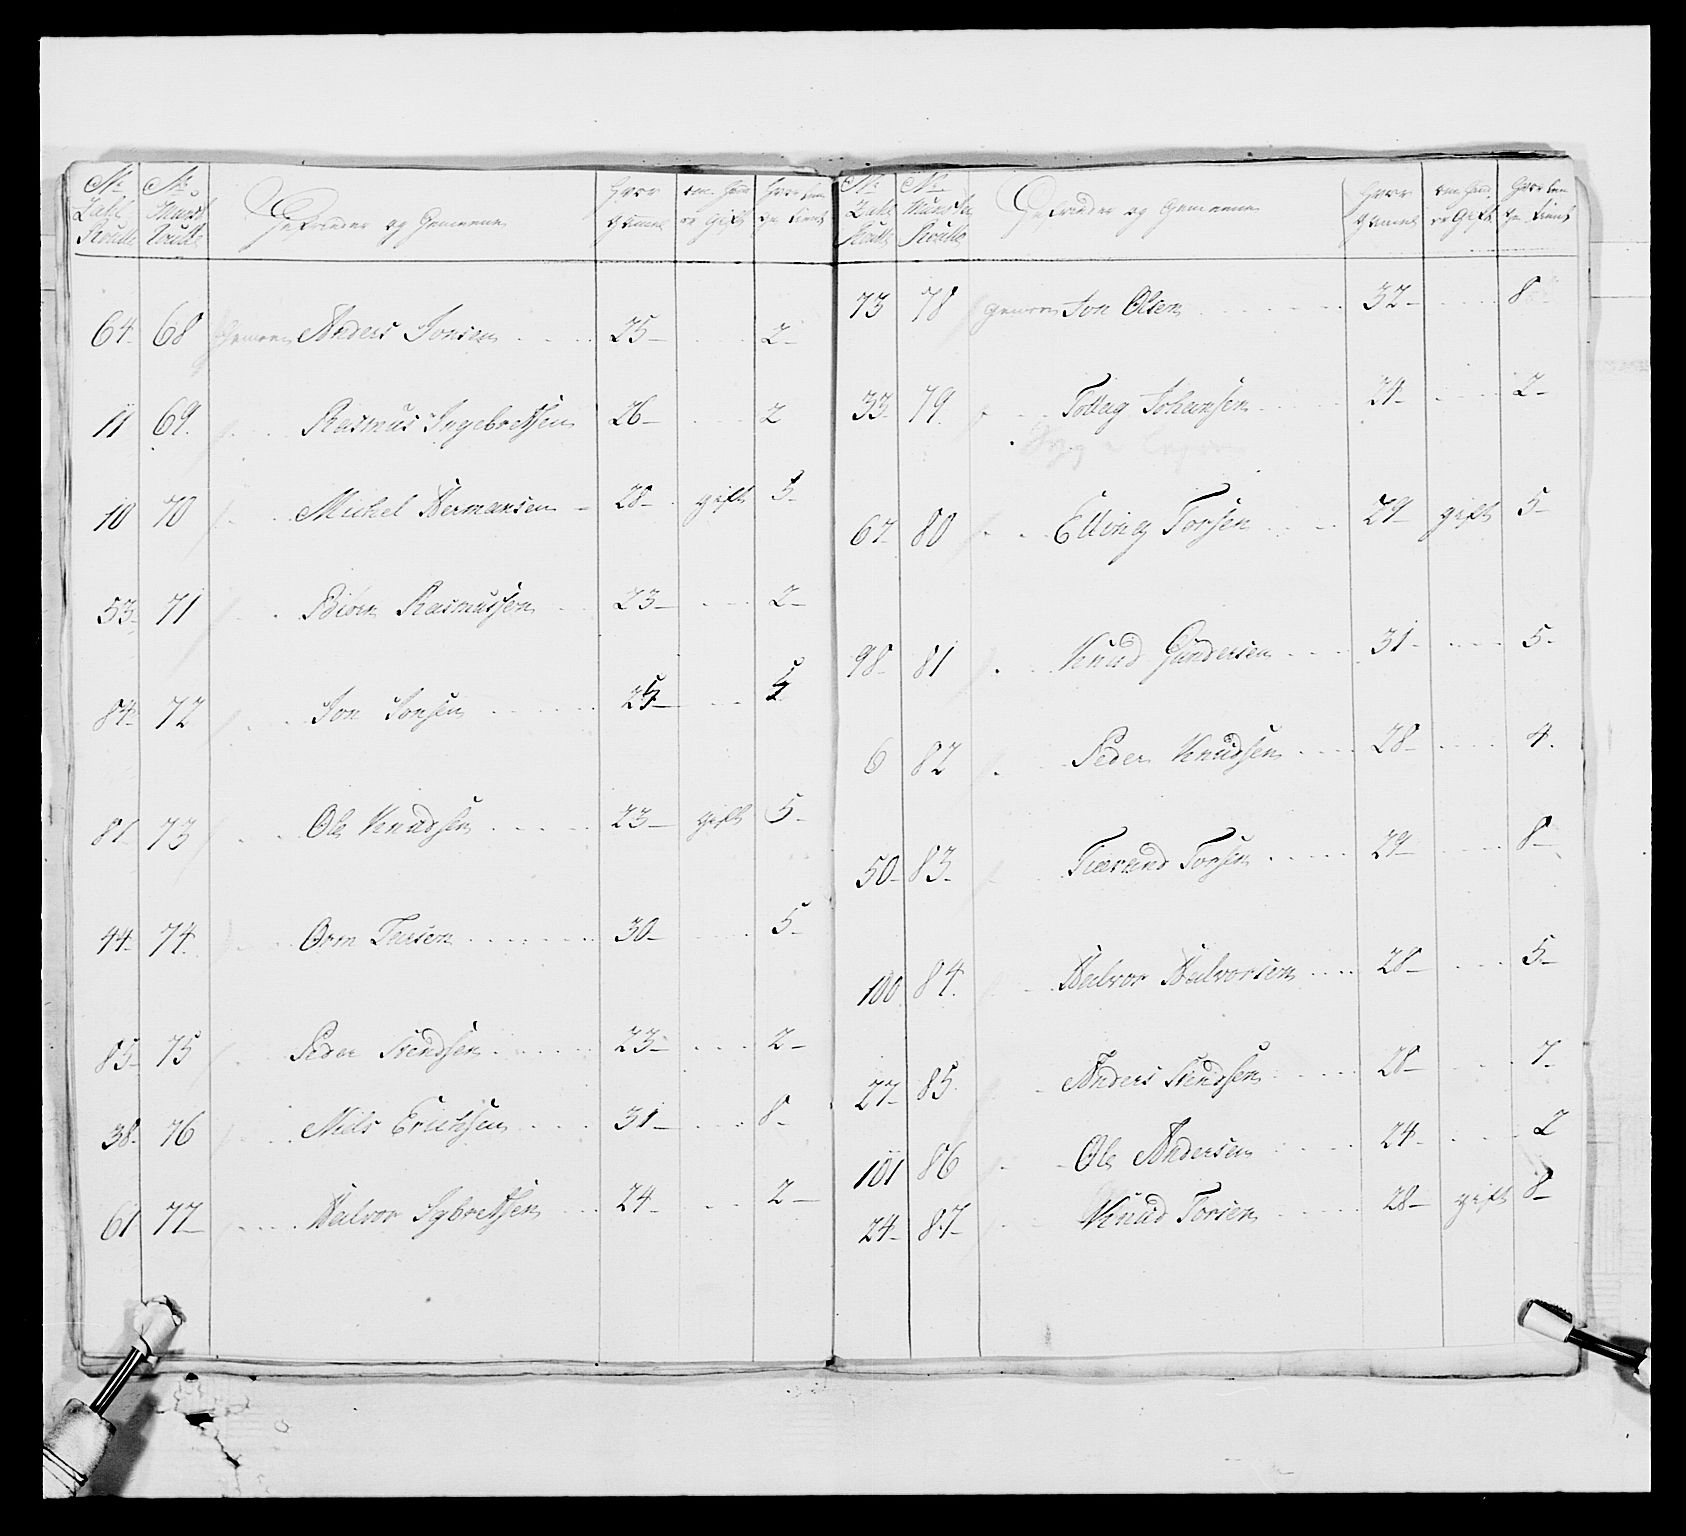 No No
Gefreider og Gemeene
Hvor gamel
om hand er Gift
64 68 Gemeen Anders Jonsen 25 2
11 69 Rasmus Ingebretsen 26 2
10 70 Michel Hermansen 28 gift 5
53 71 Biörn Rasmussen 23 2
84 72 Jon Jonsen 25 5
81 73 Ole Knudsen 23 gift 5
44 74 Orm 30 5
85 75 Peder Svendsen 23 2
38 76 Nils Erichsen 31 8
61 77 Halvor Sybretsen 24 2
No No
Gefreider og Gemeene
Hvor gamel
om hand er Gift
73 78 Gemeen Jon Olsen 32 8
33 79 Tollag Johansen 24 2
67 80 Elling Torsen 29 gift 5
98 81 Knud Gundersen 31 5
6 82 Peder Knudsen 28 4
50 83 Torsen 29 8
100 84 Halvor Halvorsen 28 5
27 85 Anders Svendsen 28 7
101 86 Ole Andersen 24 2
24 87 Knud Torsen 28 gift 8